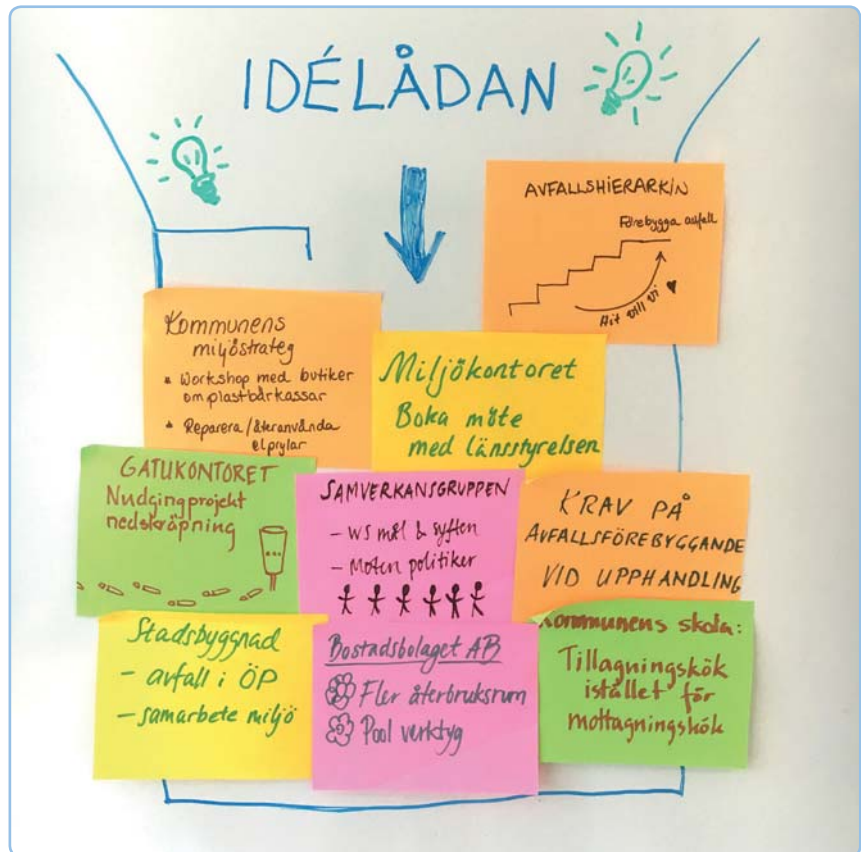 IDÉLÅDAN
AVFALLSHIERARKIN
Förebygga avfall
Hit vill vi
Kommunens
miljöstrateg
* Workshop med butiker
om plastbärkassar
* Reparera/återanvända
elprylar
Miljökontoret
Boka möte
med länsstyrelsen
GATUKONTORET
Nudgingprojekt
nedskräpning
SAMVERKANSGRUPPEN
- WS mål & syften
- Möten politiker
KRAV PÅ
AVFALLSFÖREBYGGANDE
VID UPPHANDLING
Stadsbyggnad
- avfall i ÖP
- samarbete miljö
Bostadsbolaget AB
Fler återbruksrum
Pool verktyg
Kommunens skola:
Tillagningskök
istället för
mottagningskök